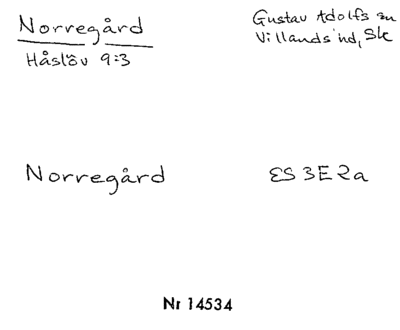 Norregård
Gustav Adolfs sn
Villands hd, Sk
Håslöv 9:3
Norregård
ES 3E2a
Nr 14534